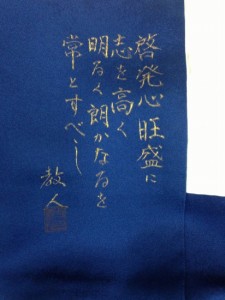 啓発心旺盛に
志を高く
明るく朗かなるを
常とすべし
教人